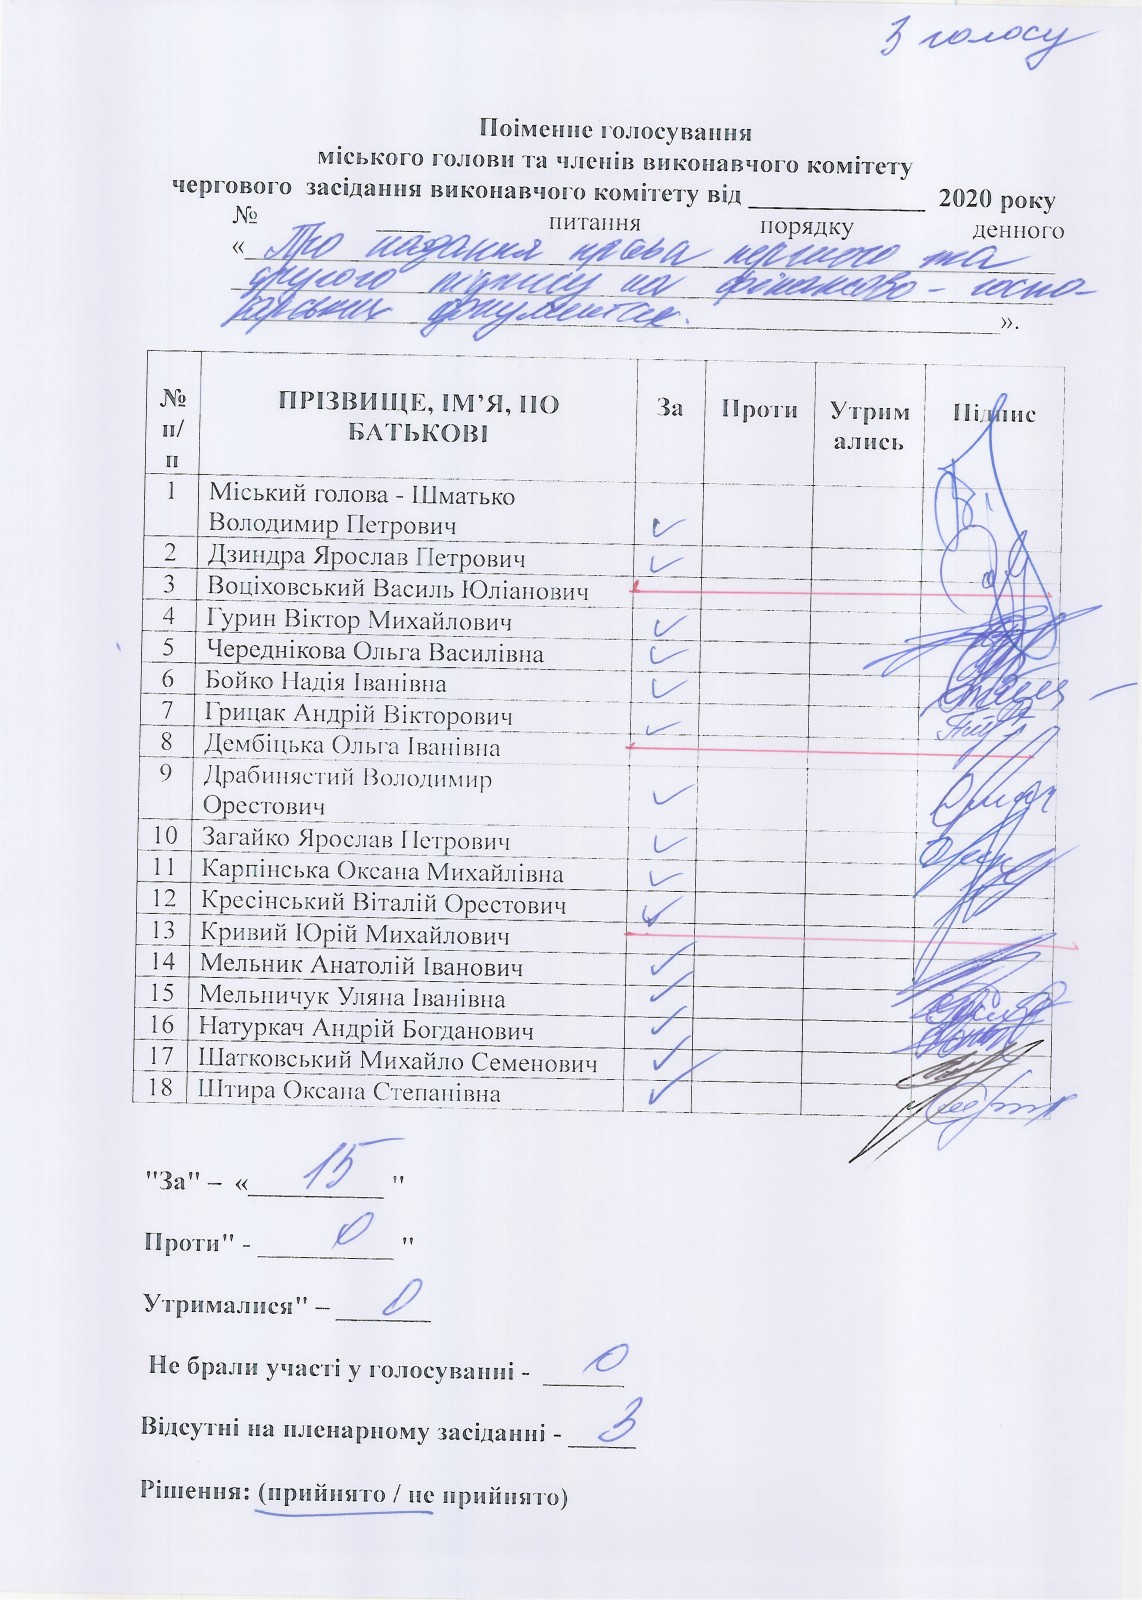 З голосу
Поіменне голосування
міського голови та членів виконавчого комітету
чергового засідання виконавчого комітету від _____________ 2020 року
№ ____ питання порядку денного
« Про надання права першого та
другого підпису на фінансово - госпо-
дарських документах. ».
№ п/п ПРІЗВИЩЕ, ІМ’Я, ПО БАТЬКОВІ За Проти Утримались Підпис
1 Міський голова - Шматько
Володимир Петрович ✓
2 Дзиндра Ярослав Петрович ✓
3 Воціховський Василь Юліанович
4 Гурин Віктор Михайлович ✓
5 Череднікова Ольга Василівна ✓
6 Бойко Надія Іванівна ✓
7 Грицак Андрій Вікторович ✓
8 Дембіцька Ольга Іванівна
9 Драбинястий Володимир
Орестович ✓
10 Загайко Ярослав Петрович ✓
11 Карпінська Оксана Михайлівна ✓
12 Кресінський Віталій Орестович ✓
13 Кривий Юрій Михайлович
14 Мельник Анатолій Іванович ✓
15 Мельничук Уляна Іванівна ✓
16 Натуркач Андрій Богданович ✓
17 Шатковський Михайло Семенович ✓
18 Штира Оксана Степанівна ✓
"За" – « 15 "
Проти" - 0 "
Утрималися" – 0
Не брали участі у голосуванні - 0
Відсутні на пленарному засіданні - 3
Рішення: (прийнято / не прийнято)